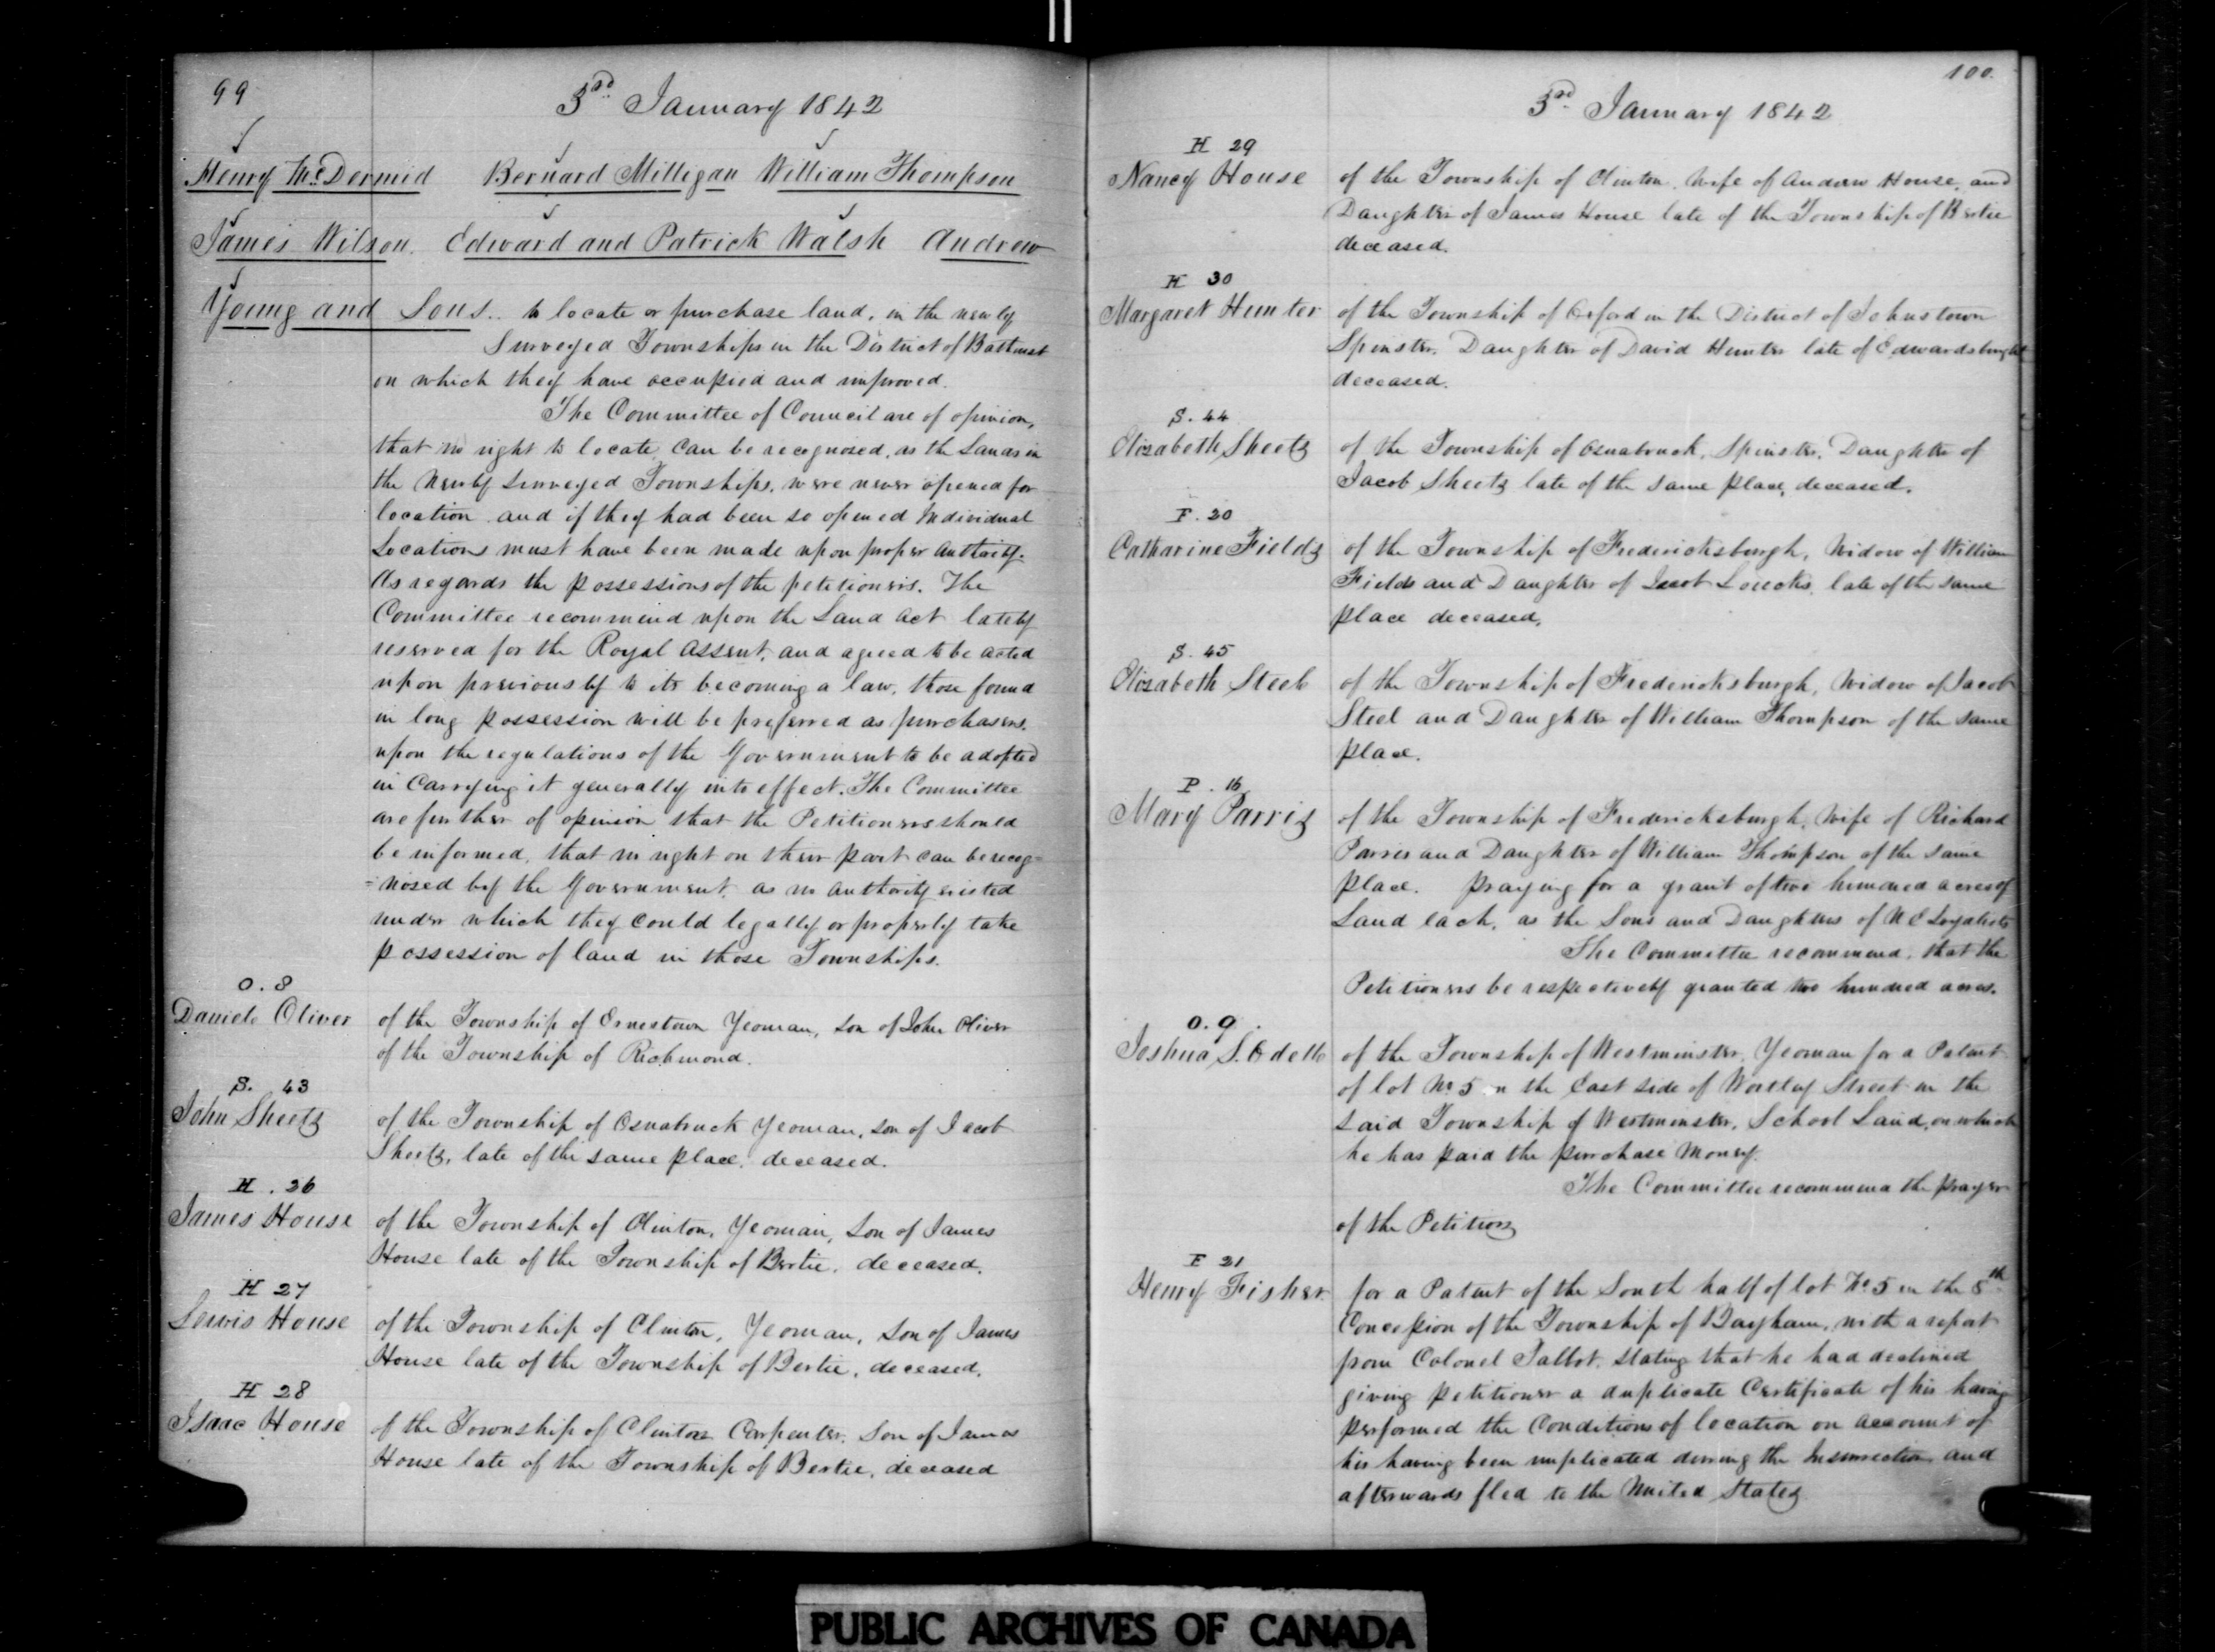 99
3rd January 1842
Henry McDermid Bernard Milligan William Thompson
James Wilson. Edward and Patrick Walsh Andrew
Young and Sons.. to locate or purchase land, in the newly
Surveyed Townships in the District of Bathurst
on which they have occupied and improved.
The Committee of Council are of opinion,
that no right to locate can be recognosed, as the Lands in
the Newly Surveyed Townships, were never opened for
location and if they had been so opened Individual
Locations must have been made upon proper Authority.
As regards the possessions of the petitioners. The
Committee recommend upon the Land Act lately
reserved for the Royal Assent, and agreed to be acted
upon previously to its becoming a law, those found
in long possession will be preferred as purchasers.
upon the regulations of the Government to be adopted
in Carrying it generally into effect. The Committee
are further of opinion that the Petitioners should
be informed, that no right on their part can be recog=
=nosed by the Government as no authority existed
under which they could legally or properly take
possession of land in those Townships.
O. 8
Daniel Oliver of the Township of Ernestown Yeoman, son of John Oliver
of the Township of Richmond.
S. 43
John Sheets of the Township of Osnabruck Yeoman, son of Jacob
Sheets, late of the same place, deceased.
H. 26
James House of the Township of Clinton, Yeoman, Son of James
House late of the Township of Bertie, deceased.
H 27
Lewis House of the Township of Clinton, Yeoman, Son of James
House late of the Township of Bertie, deceased.
H 28
Isaac House of the Township of Clinton Carpenter, Son of James
House late of the Township of Bertie, deceased
100.
3rd January 1842
H 29
Nancy House of the Township of Clinton, Wife of Andrew House, and
Daughter of James House late of the Township of Bertie
deceased.
H 30
Margaret Hunter of the Township of Oxford in the District of Johnstown
Spinster, Daughter of David Hunter late of Edwardsburgh
deceased.
S. 44
Elizabeth Sheets of the Township of Osnabruck, Spinster, Daughter of
Jacob Sheets late of the same place, deceased.
F. 20
Catharine Fields of the Township of Fredericksburgh, Widow of William
Fields and Daughter of Loucks, late of the same
place deceased.
S. 45
Elizabeth Steel of the Township of Fredericksburgh, Widow of Jacob
Steel and Daughter of William Thompson of the same
place.
P. 16
Mary Parris of the Township of Fredericksburgh, Wife of Richard
Parris and Daughter of William Thompson of the same
place. praying for a grant of two hundred acres of
Land each, as the Sons and Daughters of U E Loyalists
The Committee recommend, that the
Petitioners be respectively granted two hundred acres.
O. 9.
Joshua S. Odell of the Township of Westminster, Yeoman for a Patent
of lot No 5 on the East side of Wortley Street in the
said Township of Westminster, School Land, on which
he has paid the purchase Money.
The Committee recommend the prayer
of the Petition
F 21
Henry Fisher for a Patent of the South half of lot No 5 in the 8th
Concession of the Township of Bayham, with a report
from Colonel Talbot, stating that he had declined
giving petitioner a duplicate Certificate of his having
performed the Conditions of location on account of
his having been implicated during the Insurrection and
afterwards fled to the United States
PUBLIC ARCHIVES OF CANADA